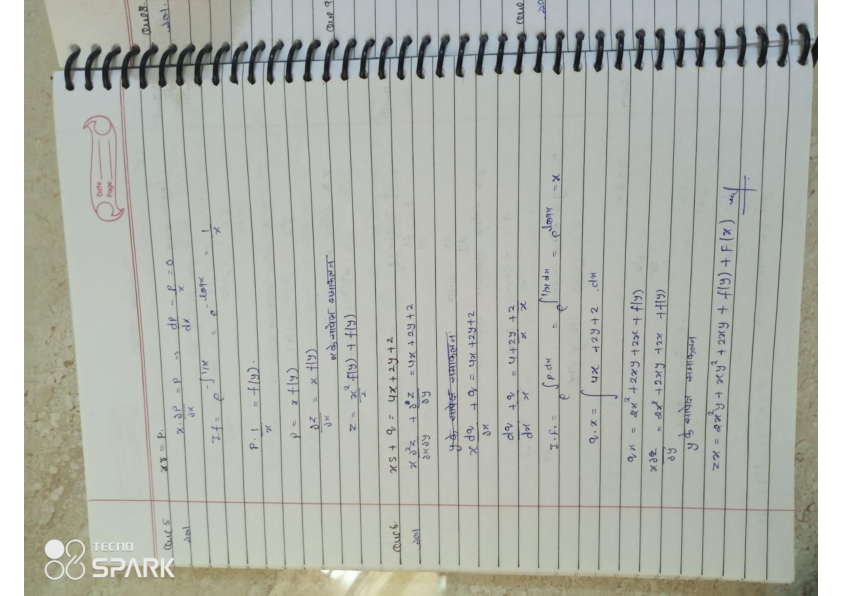 Date
Page
Ques 5 xr = p.
हल x.∂p/∂x = p → dp/dx - p/x = 0
I.f = e^-∫1/x = e^-logx = 1/x
p.1/x = f(y).
p = x f(y)
∂z/∂x = x f(y)
x के सापेक्ष समाकलन
z = x²/2 f(y) + f(y)
Ques 6 xs + q = 4x + 2y + 2
हल x ∂²z/∂x∂y + ∂z/∂y = 4x + 2y + 2
y के सापेक्ष समाकलन
x dq/∂x + q = 4x + 2y + 2
dq/dx + q/x = 4 + 2y/x + 2/x
I.F. = e^∫p dx = e^∫1/x dx = e^logx = x
q.x = ∫ 4x + 2y + 2 .dx
qx = 2x² + 2xy + 2x + f(y)
x∂z/∂y = 2x² + 2xy + 2x + f(y)
y के सापेक्ष समाकलन
zx = 2x²y + xy² + 2xy + f(y) + F(x)
TECNO
SPARK